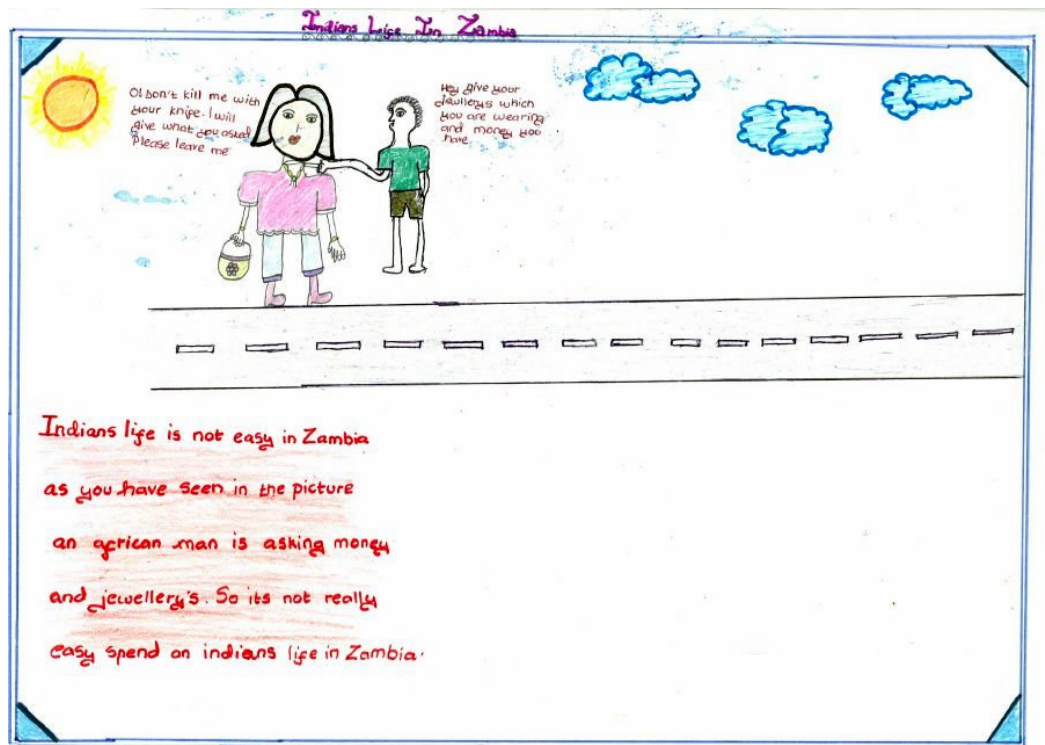 Indians Life In Zambia
O! Don't kill me with
your knife. I will
give what you asked
Please leave me
Hey give your
Jewllerys which
you are wearing
and money you
have
Indians life is not easy in Zambia
as you have seen in the picture
an african man is asking money
and jewellery's. So its not really
easy spend an indians life in Zambia.